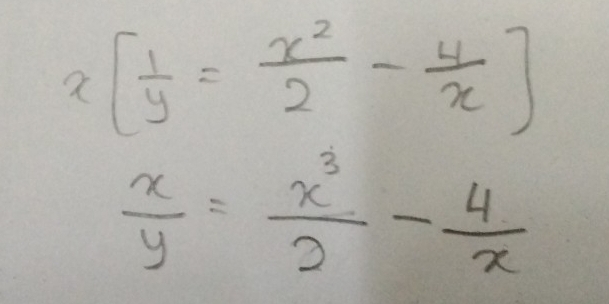 x[1/y = x²/2 - 4/x]
x/y = x³/2 - 4/x